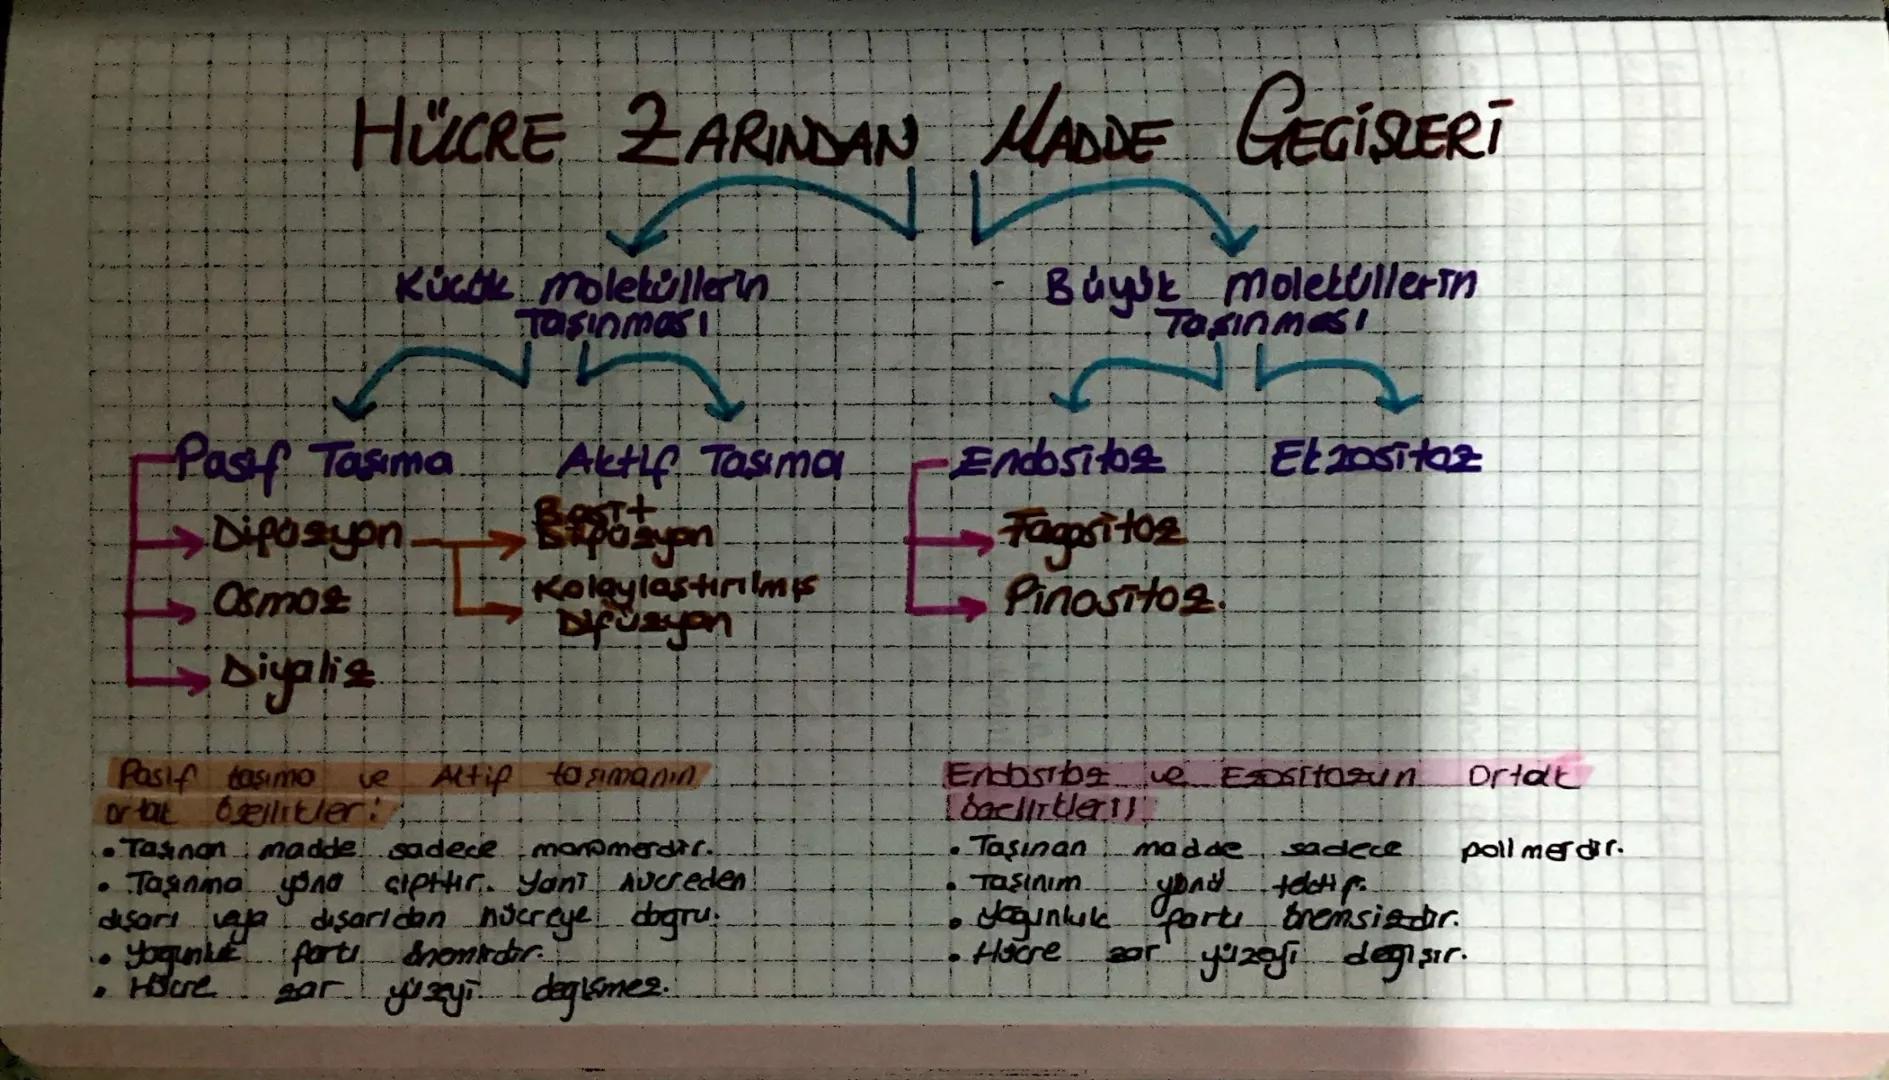 HÜCRE ZARINDAN MADDE GEÇİŞLERİ
Küçük moleküllerin
Taşınması
Büyük moleküllerin
Taşınması
Pasif Taşıma
Aktif Taşıma
Endositoz
Ekzositoz
Difüzyon
Basit
Difüzyon
Fagositoz
Osmoz
Kolaylaştırılmış
Difüzyon
Pinositoz.
Diyaliz
Pasif taşıma ve Aktif taşımanın
ortak özellikler:
• Taşınan madde sadece monomerdir.
• Taşınma yönü çifttir. Yani hücreden
dışarı veya dışarıdan hücreye doğru.
• Yoğunluk farkı önemlidir.
• Hücre zar yüzeyi değişmez.
Endositoz ve Ezositozun Ortak
özellikleri;
• Taşınan madde sadece polimerdir.
• Taşınım yönü tektir.
• Yoğunluk farkı önemsizdir.
• Hücre zar yüzeyi değişir.